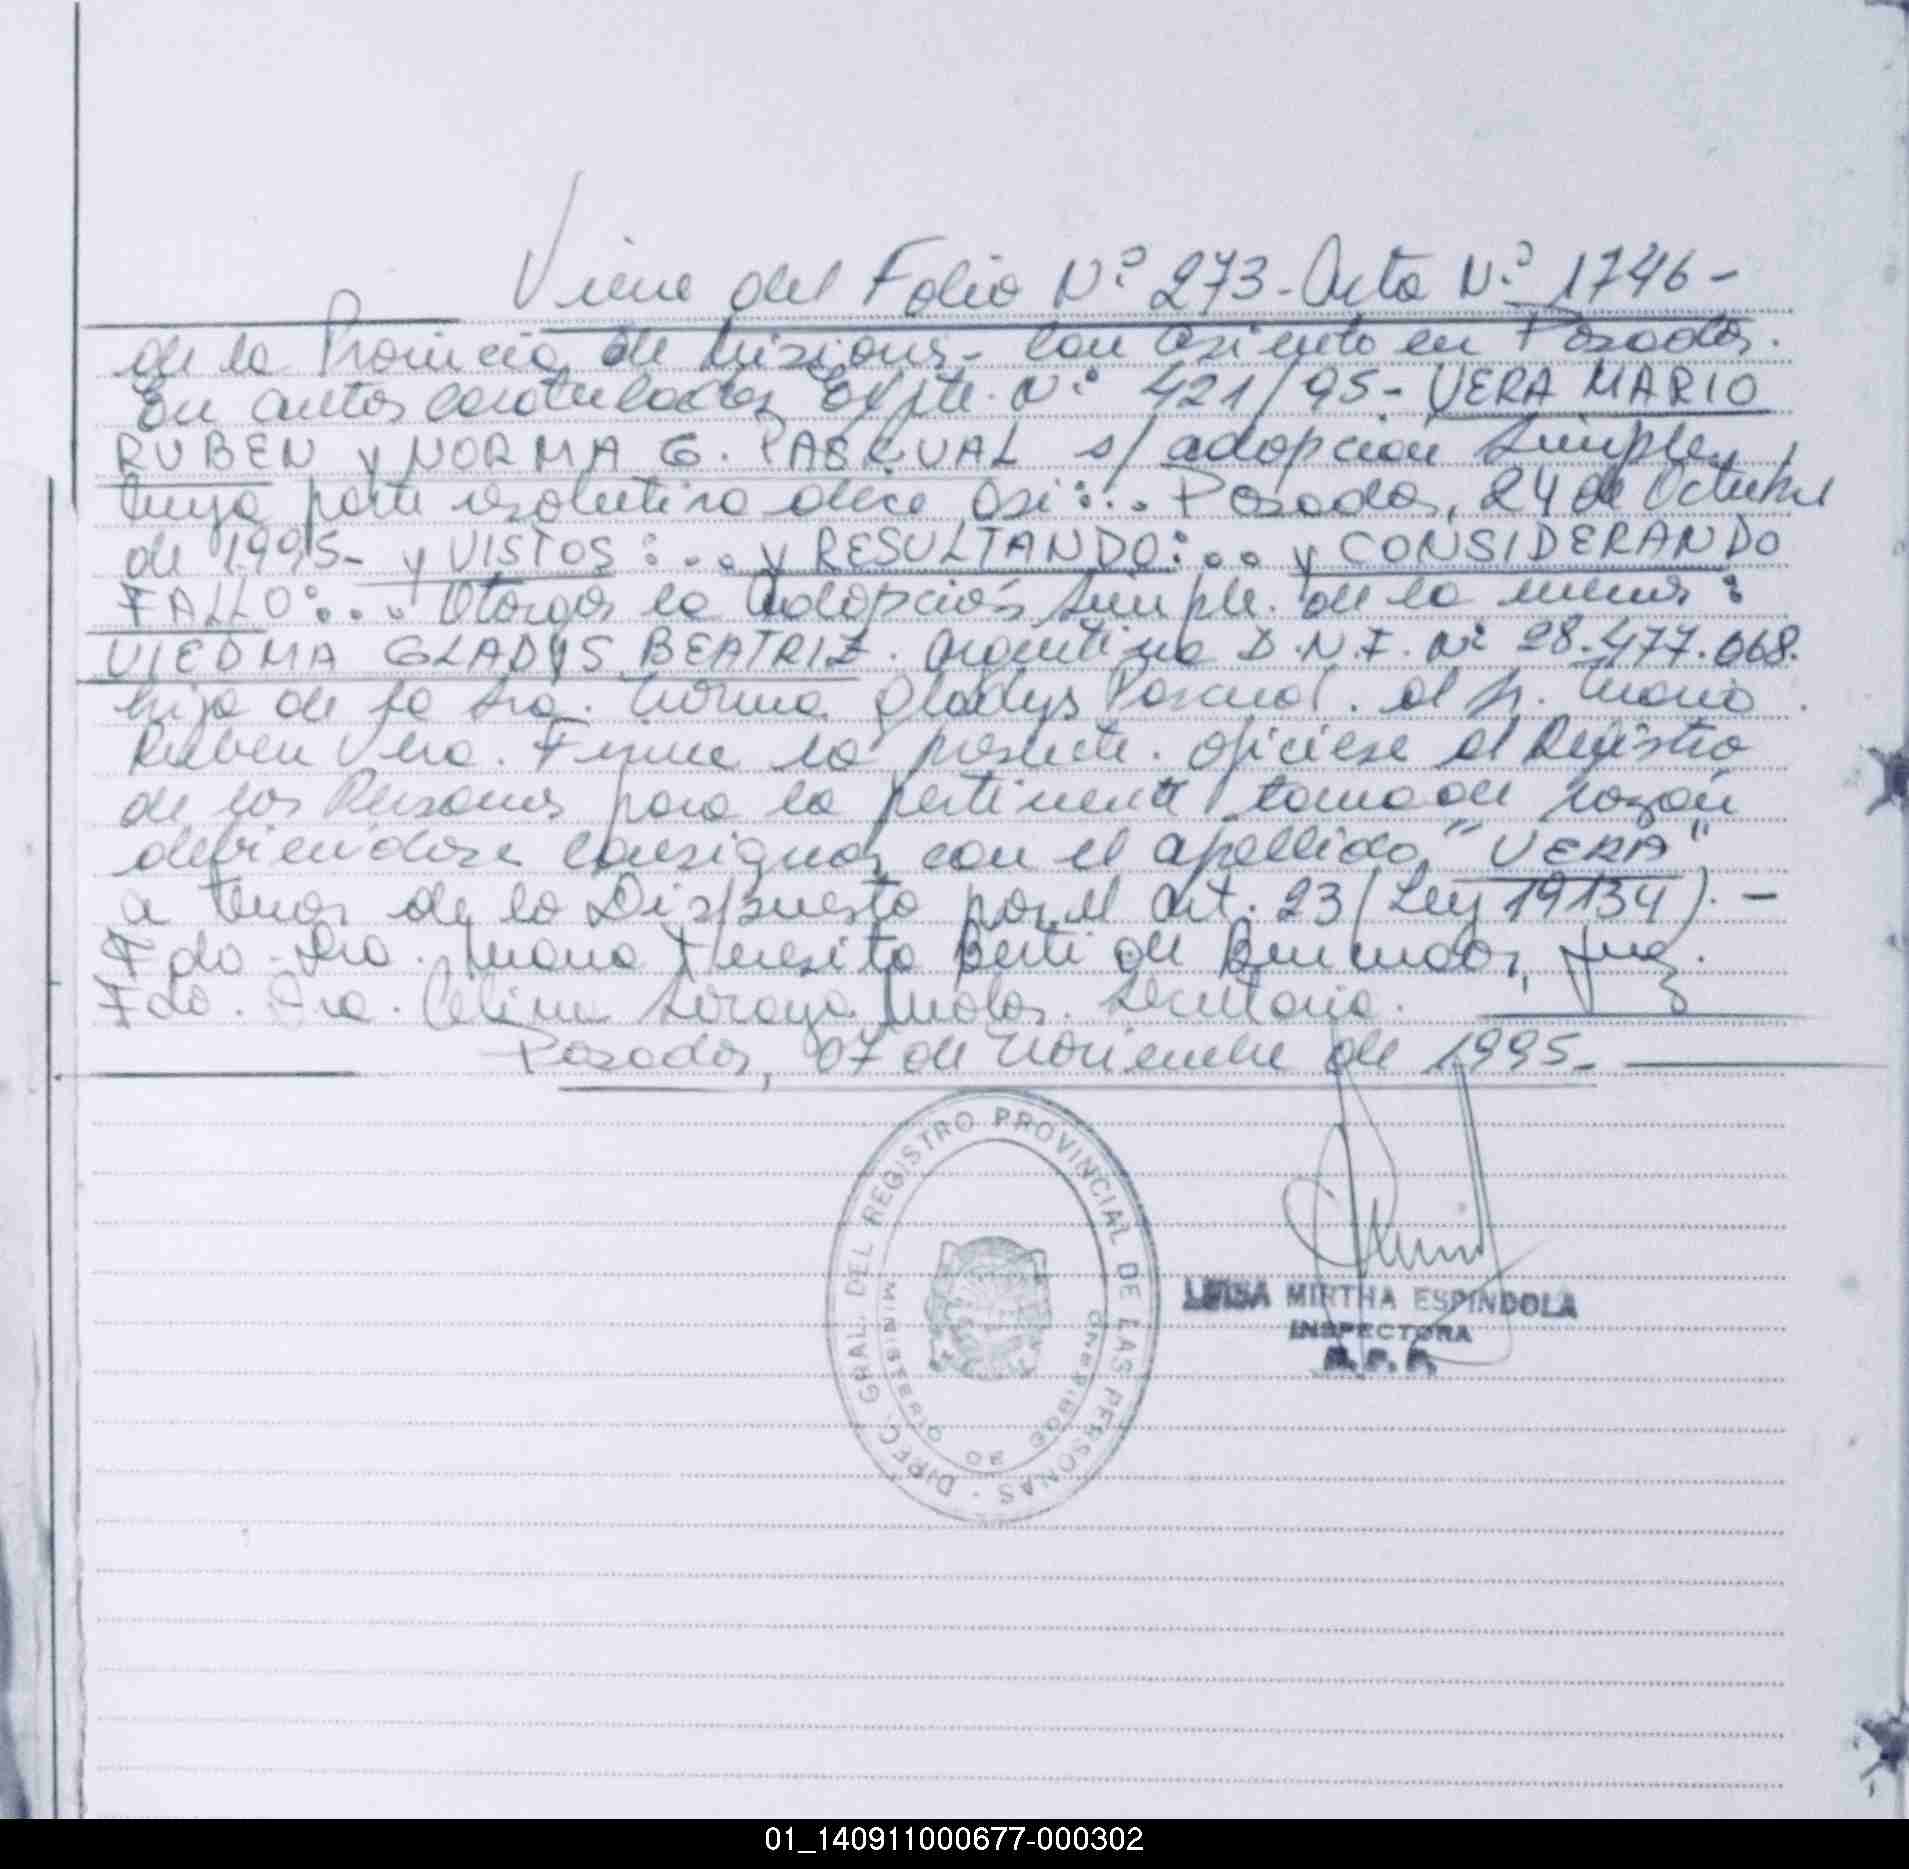 Viene del Folio Nº 273 - Acta Nº 1746 -
de la Provincia de Misiones - con asiento en Posadas.
En autos caratulados Expte. Nº 421/95 - VERA MARIO
RUBEN y NORMA G. PASCUAL s/ adopcion Simple,
cuya parte resolutiva dice asi:... Posadas, 24 de Octubre
de 1995 - y VISTOS:... y RESULTANDO:... y CONSIDERANDO
FALLO:... Otorgar la Adopción Simple. de la menor:
VIEDMA GLADYS BEATRIZ. argentina D.N.I. Nº 28.477.068.
hija de la Sra. Norma Gladys Pascual. al Sr. Mario
Ruben Vera. Firme la presente. ofíciese al Registro
de las Personas para la pertinente toma de razón
debiendose consignar con el apellido "VERA"
a tenor de lo Dispuesto por el Art. 23 (Ley 19134). -
Fdo. Dra. Maria Teresita Berti de, Juez.
Fdo. Dra. Soraya. Secretaria.
Posadas, 07 de Noviembre de 1995 -
DIREC. GRAL. DEL REGISTRO PROVINCIAL DE LAS PERSONAS
MINISTERIO DE GOBIERNO
LUISA MIRTHA ESPINDOLA
INSPECTORA
R. P. P.
01_140911000677-000302